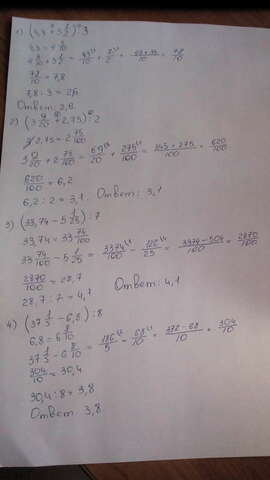 1) (4,3 + 3 1/2) : 3
4,3 = 4 3/10
4 3/10 + 3 1/2 = 43/10 + 7/2 = 43+35/10 = 78/10
78/10 = 7,8
7,8 : 3 = 2,6
Ответ: 2,6
2) (3 9/20 + 2,75) : 2
2,75 = 2 75/100
3 9/20 + 2 75/100 = 69/20 + 275/100 = 345+275/100 = 620/100
620/100 = 6,2
6,2 : 2 = 3,1 Ответ: 3,1
3) (33,74 - 5 1/25) : 7
33,74 = 33 74/100
33 74/100 - 5 1/25 = 3374/100 - 126/25 = 3374-504/100 = 2870/100
2870/100 = 28,7
28,7 : 7 = 4,1 Ответ: 4,1
4) (37 1/5 - 6,8) : 8
6,8 = 6 8/10
37 1/5 - 6 8/10 = 186/5 - 68/10 = 372-68/10 = 304/10
304/10 = 30,4
30,4 : 8 = 3,8
Ответ: 3,8